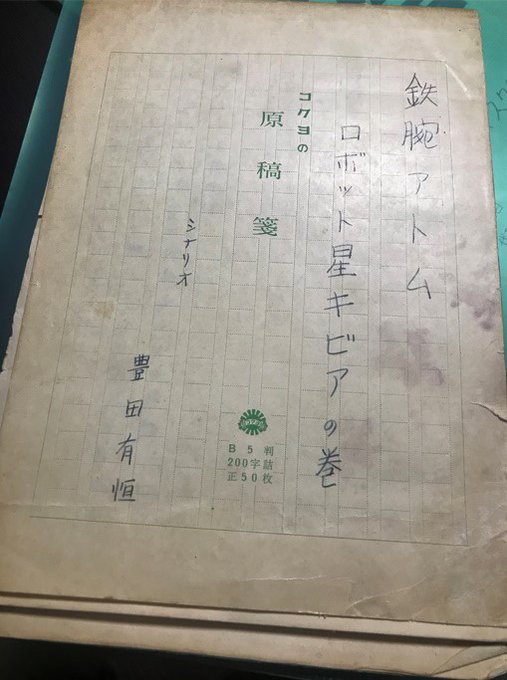 鉄腕アトム
ロボット星キビアの巻
コクヨの
原稿箋
シナリオ
豊田有恒
B5判
200字詰
正50枚